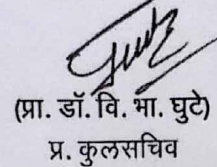 (प्रा. डॉ. वि. भा. घुटे)
प्र. कुलसचिव